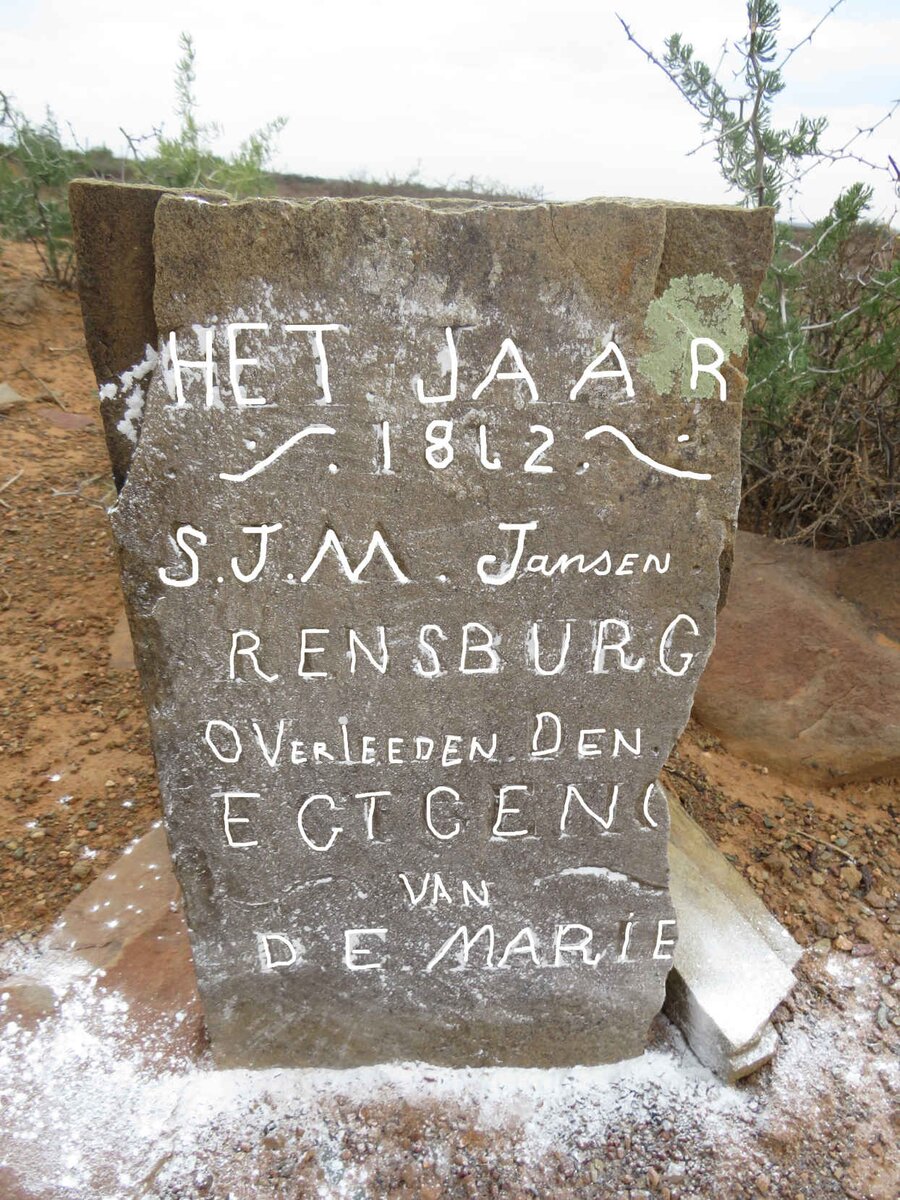 HET JAAR
.1812.
S.J.M. Jansen
RENSBURG
OVerLEEDEN DEN
EGTGEN
VAN
DE MARIE